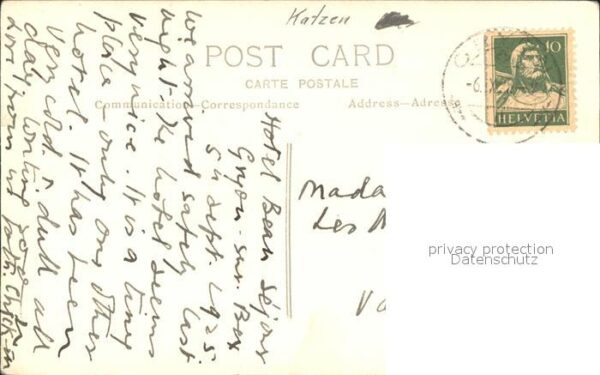 Katzen
POST CARD
CARTE POSTALE
Communication-Correspondance
Address-Adresse
10
HELVETIA
Hotel Beau Séjour
Gryon-sur-Bex
5th Sept. 1925.
We arrived safely last
night. The hotel seems
very nice. It is a tiny
place - only one other
hotel. It has been
very cold & dull all
day. Writing soon
Love from us both.
Mada
Les
Va
privacy protection
Datenschutz